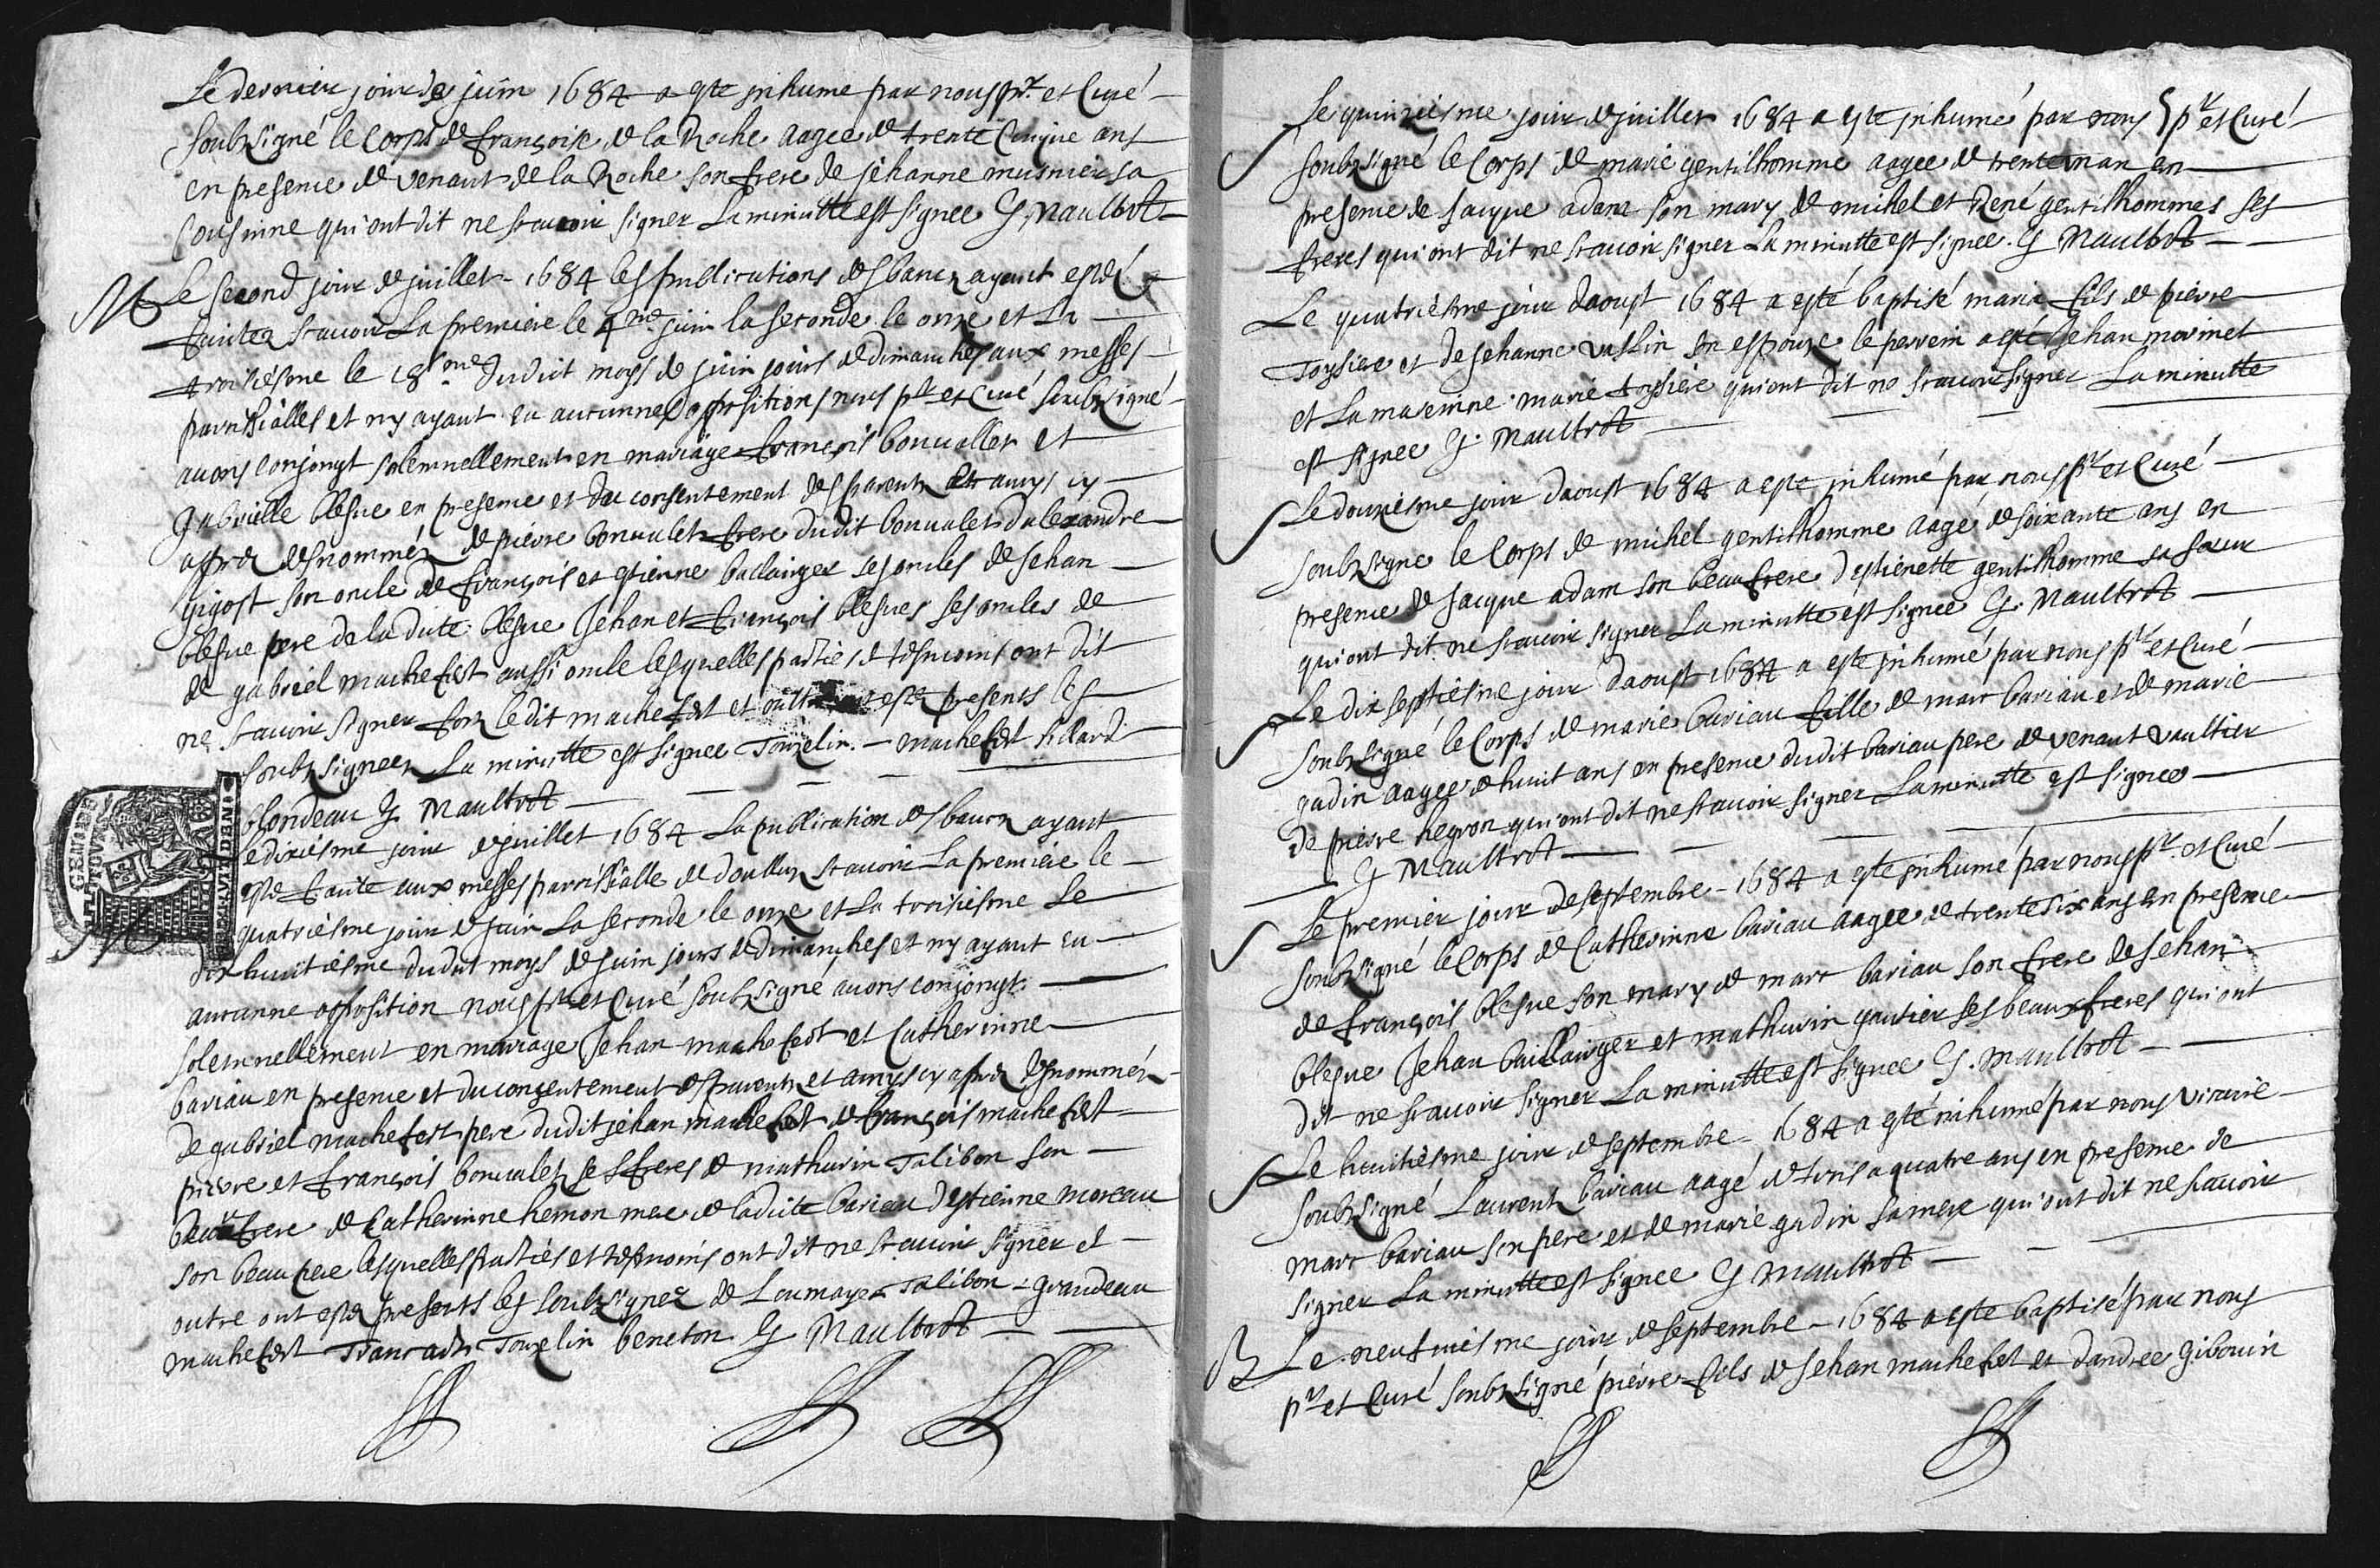 Le dernier jour de juin 1684 a este inhume par nous ptr. et Curé
soubzsigné le Corps de françoise de la Roche aagee de trente Cinque ans
en presence de venant de la Roche son frere de jehanne musnier sa
Cousinne qui ont dit ne scauoir signer La minutte est signee G. Maultrot
M Le second jour de juillet 1684 les publications des bancz ayant estéz
faittez scauoir La premiere le 4me juin la seconde le onze et La
troisiésme le 18me dudict moys de juin jours de dimanches aux messes
paroissialles et ny ayant eu aucunnes oppositions nous ptr et Curé soubzsigné
auons conjongt solemnellement en mariage françois bonuallet et
gabrielle blesue en presence et du consentement des parentz et amys cy
aprez desnomméz de pierre bonualet frere dudit bonualet dalexandre
gigost son oncle de françois et estienne baclanger ses oncles de Jehan
blesue pere de la dite blesue Jehan et françois blesues ses oncles de
de gabriel machefert aussi oncle lesquelles parties et tesmoins ont dit
ne scauoir signer fors le dit machefert et oultre ont estez presents les
soubzsignez La minutte est signee Tonzelin machefert sillard
blondeau G Maultrot
Le dixiesme jour de juillet 1684 La publication des bancz ayant
este faite aux messes paroissialle de doullus scauoir La premiere le
quatriésme jour de juin La seconde le onze et La troisiesme Le
dix huitiesme dudit moys de juin jours de dimanches et ny ayant eu
aucunne opposition nous ptr et Curé soubzsigné auons conjongt
solemnellement en mariage Jehan machefert et Catherinne
bariau en presence et du consentement des parentz et amys cy aprez desnomméz
de gabriel machefert pere dudit jehan machefert de françois machefert
pierre et françois bonualet ses freres de mathurin Talibon son
beau frere de Catherinne hemon mere de la dite bariau destienne moreau
son beau pere lesquelles parties et tesmoins ont dit ne scauoir signer et
outre ont estez presents les soubzsignez de Talibon grandeau
machefert Tonzelin beneton G Maultrot
GENERALITE TOVRS
Le quinziésme jour de juillet 1684 a este inhumé par nous ptr et Curé
soubzsigné le Corps de marie gentilhomme aagee de trente un an en
presence de Jacque adam son mary de michel et René gentilhommes ses
freres qui ont dit ne scauoir signer La minutte est signee G Maultrot
Le quatriésme jour daoust 1684 a esté baptisé fils de pierre
Toysiere et de Jehanne vaslin son espouze le perrein a esté Jehan morinet
et La marrinne marie toysiere qui ont dit ne scauoir signer La minutte
est signee G. Maultrot
Le douziésme jour daoust 1684 a este inhumé par nous ptr et Curé
soubzsigne le Corps de michel gentilhomme aagé de soixante ans en
presence de Jacque adam son beaufrere destienette gentilhomme sa soeur
qui ont dit ne scauoir signer La minutte est signee G. Maultrot
Le dix septiésme jour daoust 1684 a este inhumé par nous ptr et Curé
soubzsigné le Corps de marie bariau fille de marc bariau et de marie
gadin aagee de huit ans en presence dudit bariau pere de venant vaultier
de pierre hegron qui ont dit ne scauoir signer La minutte est signee
G Maultrot
Le premier jour de septembre 1684 a este inhumé par nous ptr et Curé
soubzsigné le Corps de Catherinne bariau aagee de trente six ans en presence
de françois blesue son mary de marc bariau son frere de Jehan
blesue Jehan baillanger et mathurin gautier ses beaux freres qui ont
dit ne scauoir signer La minutte est signee G. Maultrot
Le huitiésme jour de septembre 1684 a esté inhumé par nous vicaire
soubzsigné Laurent bariau aagé de trois a quatre ans en presence de
marc bariau son pere et de marie gadin sa mere qui ont dit ne scauoir
signer La minutte est signee G Maultrot
B Le neufuiésme jour de septembre 1684 a este baptisé par nous
ptr et Curé soubzsigné pierre fils de Jehan machefet et dandree gibouin